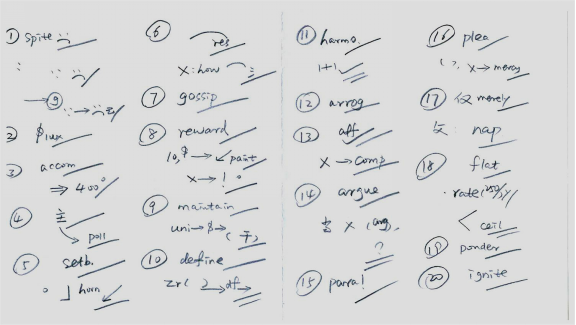 ① spite
② $ lux
③ accom
⇒ 400%
④ 主
→ poll
⑤ setb.
horn
⑥ res
x: how
⑦ gossip
⑧ reward
10,$ → paint
x → !
⑨ maintain
uni → $ →
⑩ define
df →
⑪ harmo.
1+1
⑫ arrog
⑬ aff
x → comp
⑭ argue
x (arg),
?
⑮ para!
⑯ plea
x → mercy
⑰ 仅 merely
nap
⑱ flat
rate
< ceil
⑲ ponder
⑳ ignite